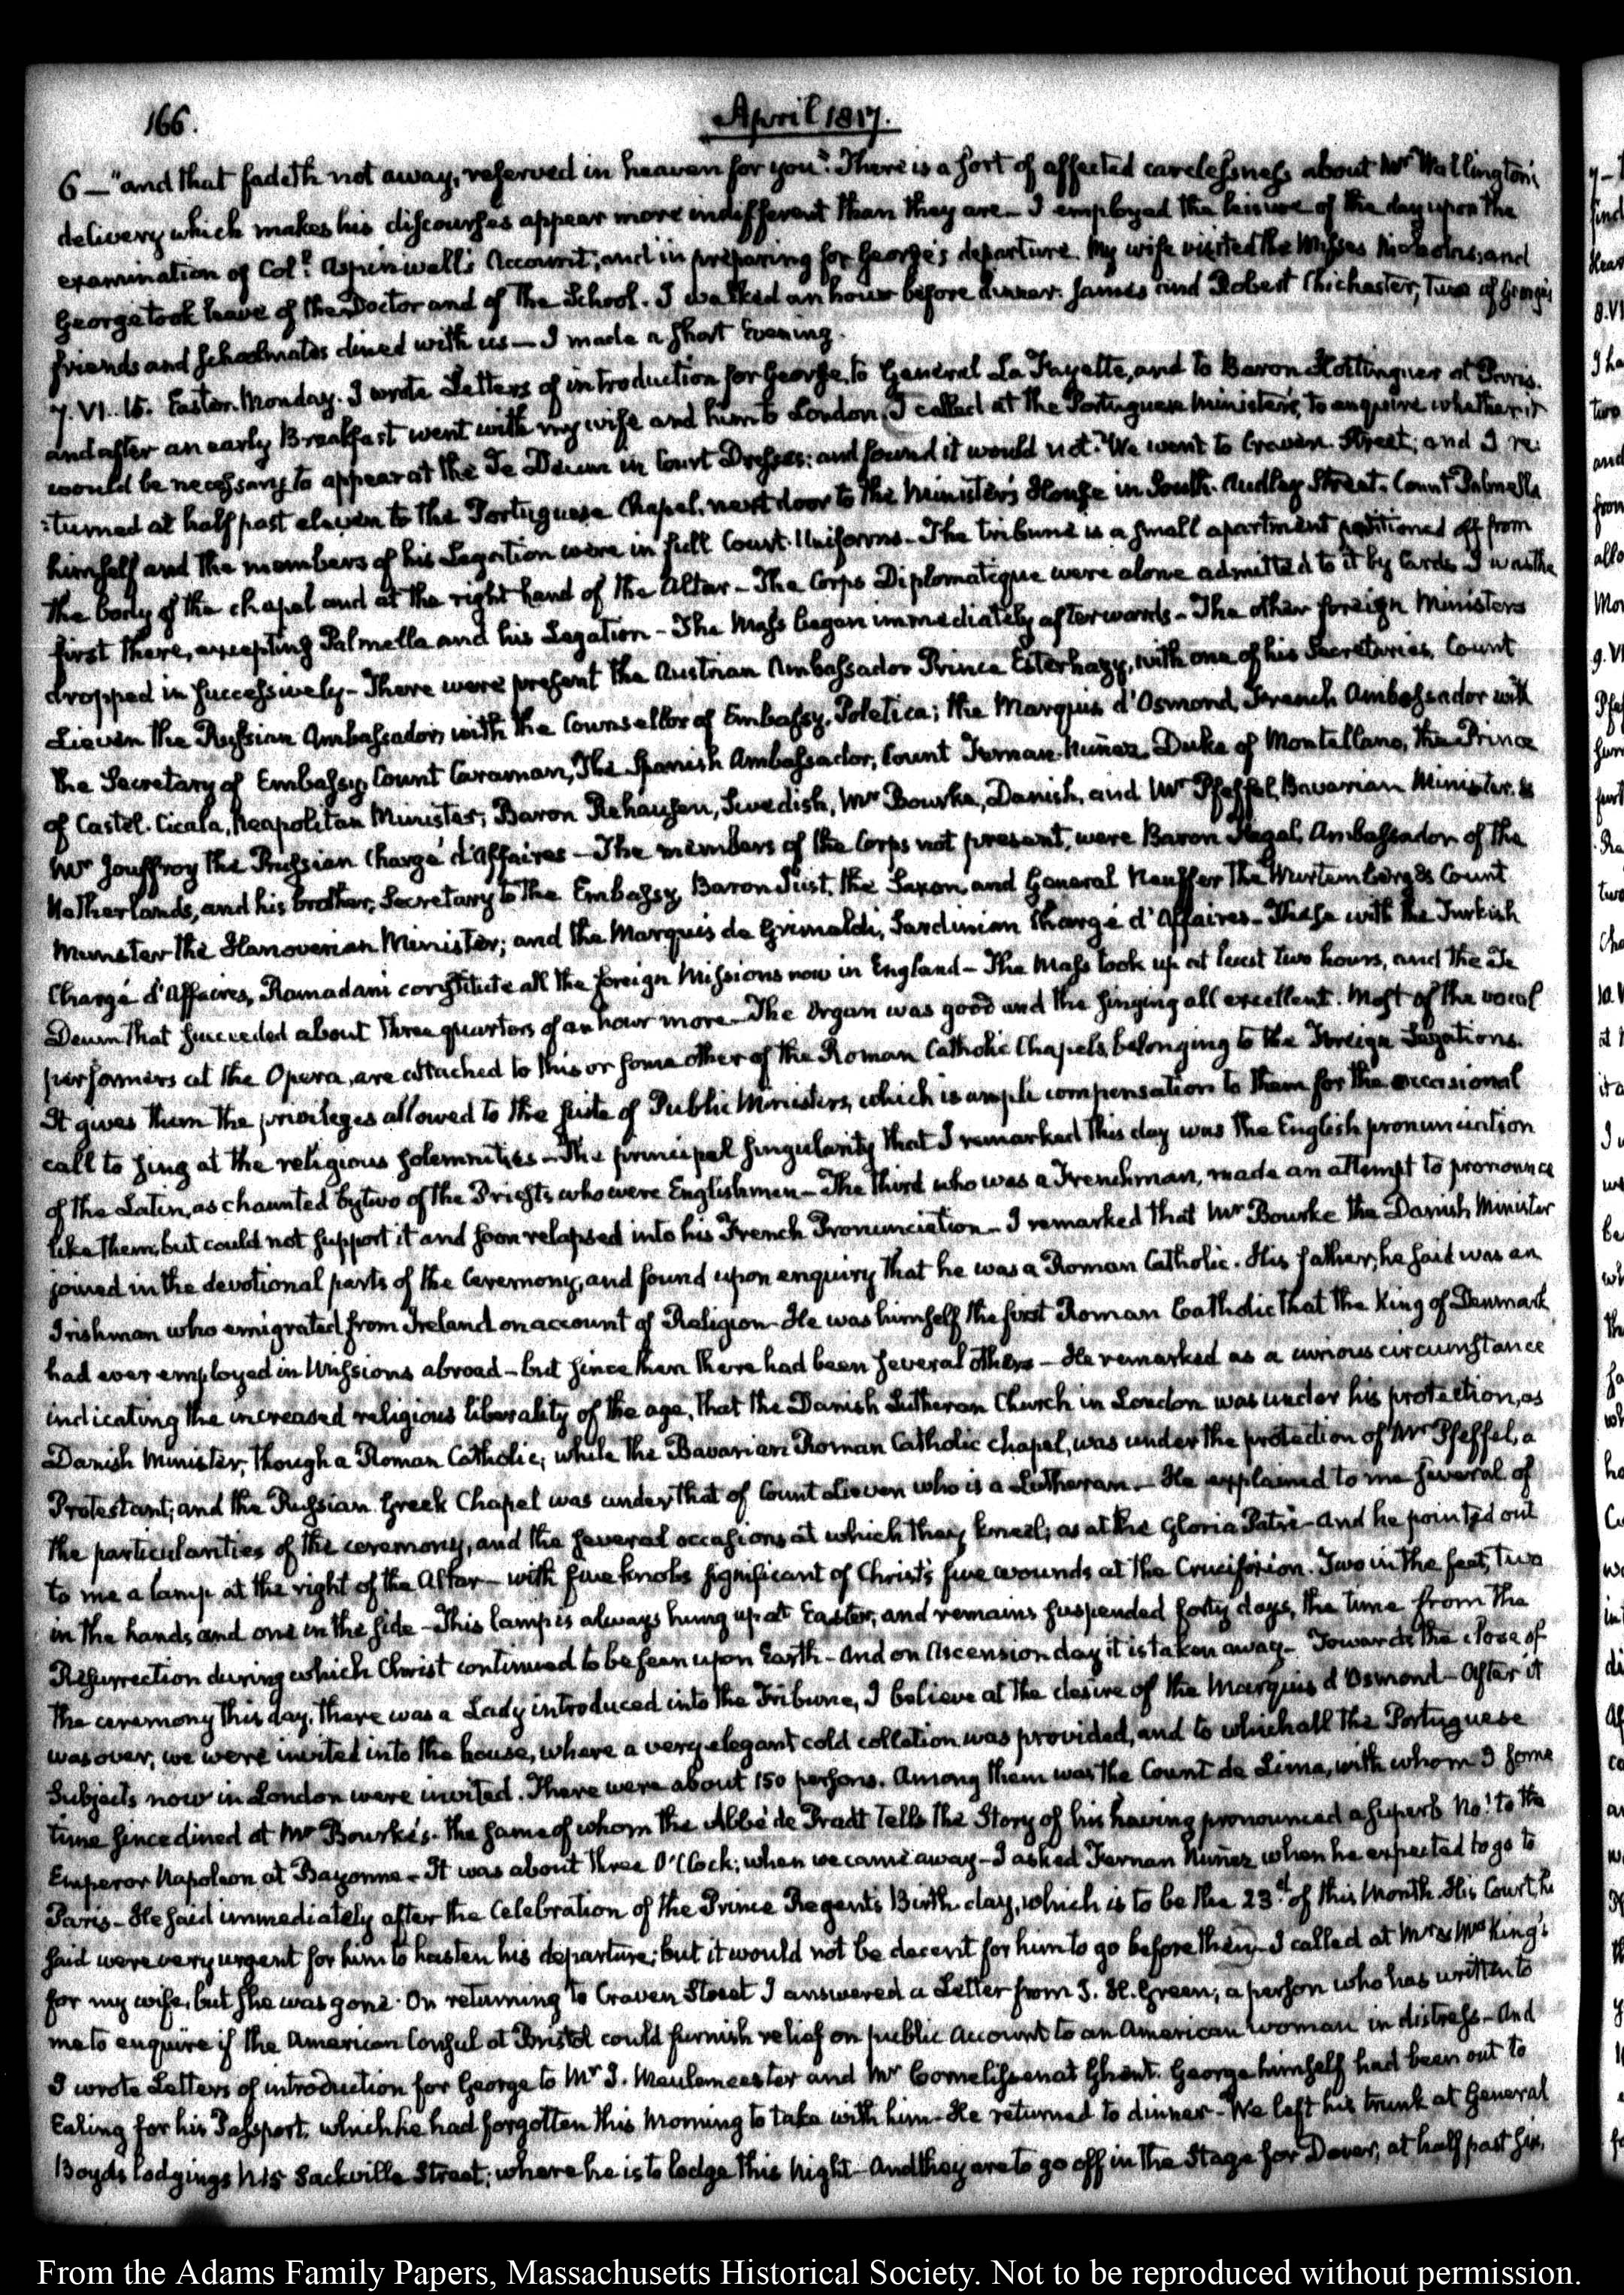 166.
April 1817.
6 — "and that fadeth not away, reserved in heaven for you". There is a sort of affected carelessness about Mr Wallington's
delivery which makes his discourses appear more indifferent than they are — I employed the leisure of the day upon the
examination of Coll. Aspinwall's Account; and in preparing for George's departure. My wife visited the Misses Nicholas; and
George took leave of the Doctor and of the School. I walked an hour before dinner. James and Robert Chichester, two of George's
friends and schoolmates dined with us — I made a short Evening.
7. VI. 15. Easter Monday. I wrote Letters of introduction for George, to General La Fayette, and to Baron Hottinguer at Paris.
and after an early Breakfast went with my wife and him to London. I called at the Portuguese Minister's, to enquire whether it
would be necessary to appear at the Te Deum in Court Dresses; and found it would not. We went to Craven Street; and I re-
:turned at half past eleven to the Portuguese Chapel, next door to the Minister's House in South Audley Street. Count Palmella
himself and the members of his Legation were in full Court Uniforms — The tribune is a small apartment partitioned off from
the body of the chapel and at the right hand of the Altar — The Corps Diplomatique were alone admitted to it by Cards. I was the
first there, excepting Palmella and his Legation — The Mass began immediately afterwards — The other foreign Ministers
dropped in successively — There were present the Austrian Ambassador Prince Esterhazy, with one of his Secretaries, Count
Lieven the Russian Ambassador, with the Counsellor of Embassy, Poletica; the Marquis d'Osmond, French Ambassador with
the Secretary of Embassy, Count Caraman, The Spanish Ambassador, Count Fernan-Nuñez, Duke of Montellano, the Prince
of Castel-Cicala, Neapolitan Minister, Baron Rehausen, Swedish, Mr Bourke, Danish, and Mr Pfeffel, Bavarian Minister. &
Mr Jouffroy the Prussian Chargé d'Affaires — The members of the Corps not present, were Baron Fagel, Ambassador of the
Netherlands, and his brother, Secretary to the Embassy, Baron Just, the Saxon, and General Neuffer the Wurtemberg & Count
Munster the Hanoverian Minister; and the Marquis de Grimaldi, Sardinian Chargé d'Affaires — These with the Turkish
Chargé d'Affaires, Ramadani constitute all the foreign Missions now in England — The Mass took up at least two hours, and the Te
Deum that succeeded about three quarters of an hour more — The Organ was good and the singing all excellent. Most of the vocal
performers at the Opera, are attached to this or some other of the Roman Catholic Chapels, belonging to the Foreign Legations.
It gives them the privileges allowed to the suite of Public Ministers, which is ample compensation to them for the occasional
call to sing at the religious solemnities — The principal singularity that I remarked this day was the English pronunciation
of the Latin, as chaunted by two of the Priests who were Englishmen — The third who was a Frenchman, made an attempt to pronounce
like them, but could not support it and soon relapsed into his French Pronunciation — I remarked that Mr Bourke the Danish Minister
joined in the devotional parts of the Ceremony, and found upon enquiry that he was a Roman Catholic. His father, he said was an
Irishman who emigrated from Ireland on account of Religion — He was himself the first Roman Catholic that the King of Denmark
had ever employed in Missions abroad — but since then there had been several others — He remarked as a curious circumstance
indicating the increased religious liberality of the age, that the Danish Lutheran Church in London was under his protection, as
Danish Minister, though a Roman Catholic; while the Bavarian Roman Catholic chapel, was under the protection of Mr Pfeffel, a
Protestant; and the Russian Greek Chapel was under that of Count Lieven who is a Lutheran — He explained to me several of
the particularities of the ceremony, and the several occasions at which they kneel; as at the Gloria Patri — And he pointed out
to me a lamp at the right of the Altar — with five knobs significant of Christ's five wounds at the Crucifixion. Two in the feet, two
in the hands and one in the side — This lamp is always hung up at Easter, and remains suspended forty days, the time from the
Resurrection during which Christ continued to be seen upon Earth — And on Ascension day it is taken away — Towards the close of
the ceremony this day, there was a Lady introduced into the Tribune, I believe at the desire of the Marquis d'Osmond — After it
was over, we were invited into the house, where a very elegant cold collation was provided, and to which all the Portuguese
Subjects now in London were invited. There were about 150 persons. Among them was the Count de Lima, with whom I some
time since dined at Mr Bourke's. the same of whom the Abbé de Pradt tells the Story of his having pronounced a superb No! to the
Emperor Napoleon at Bayonne — It was about three O'Clock; when we came away — I asked Fernan Nuñez when he expected to go to
Paris — He said immediately after the Celebration of the Prince Regent's Birth-day, which is to be the 23d of this Month. His Court, he
said were very urgent for him to hasten his departure; but it would not be decent for him to go before then — I called at Mr & Mrs King's
for my wife, but she was gone. On returning to Craven Street I answered a Letter from J. H. Green; a person who has written to
me to enquire if the American Consul at Bristol could furnish relief on public Account to an American woman in distress — And
I wrote Letters of introduction for George to Mr J. Meulemeester and Mr Cornelissen at Ghent. George himself had been out to
Ealing for his Passport, which he had forgotten this Morning to take with him — He returned to dinner — We left his trunk at General
Boyd's lodgings N. 15 Sackville Street; where he is to lodge this Night — And they are to go off in the Stage for Dover, at half past six,
From the Adams Family Papers, Massachusetts Historical Society. Not to be reproduced without permission.